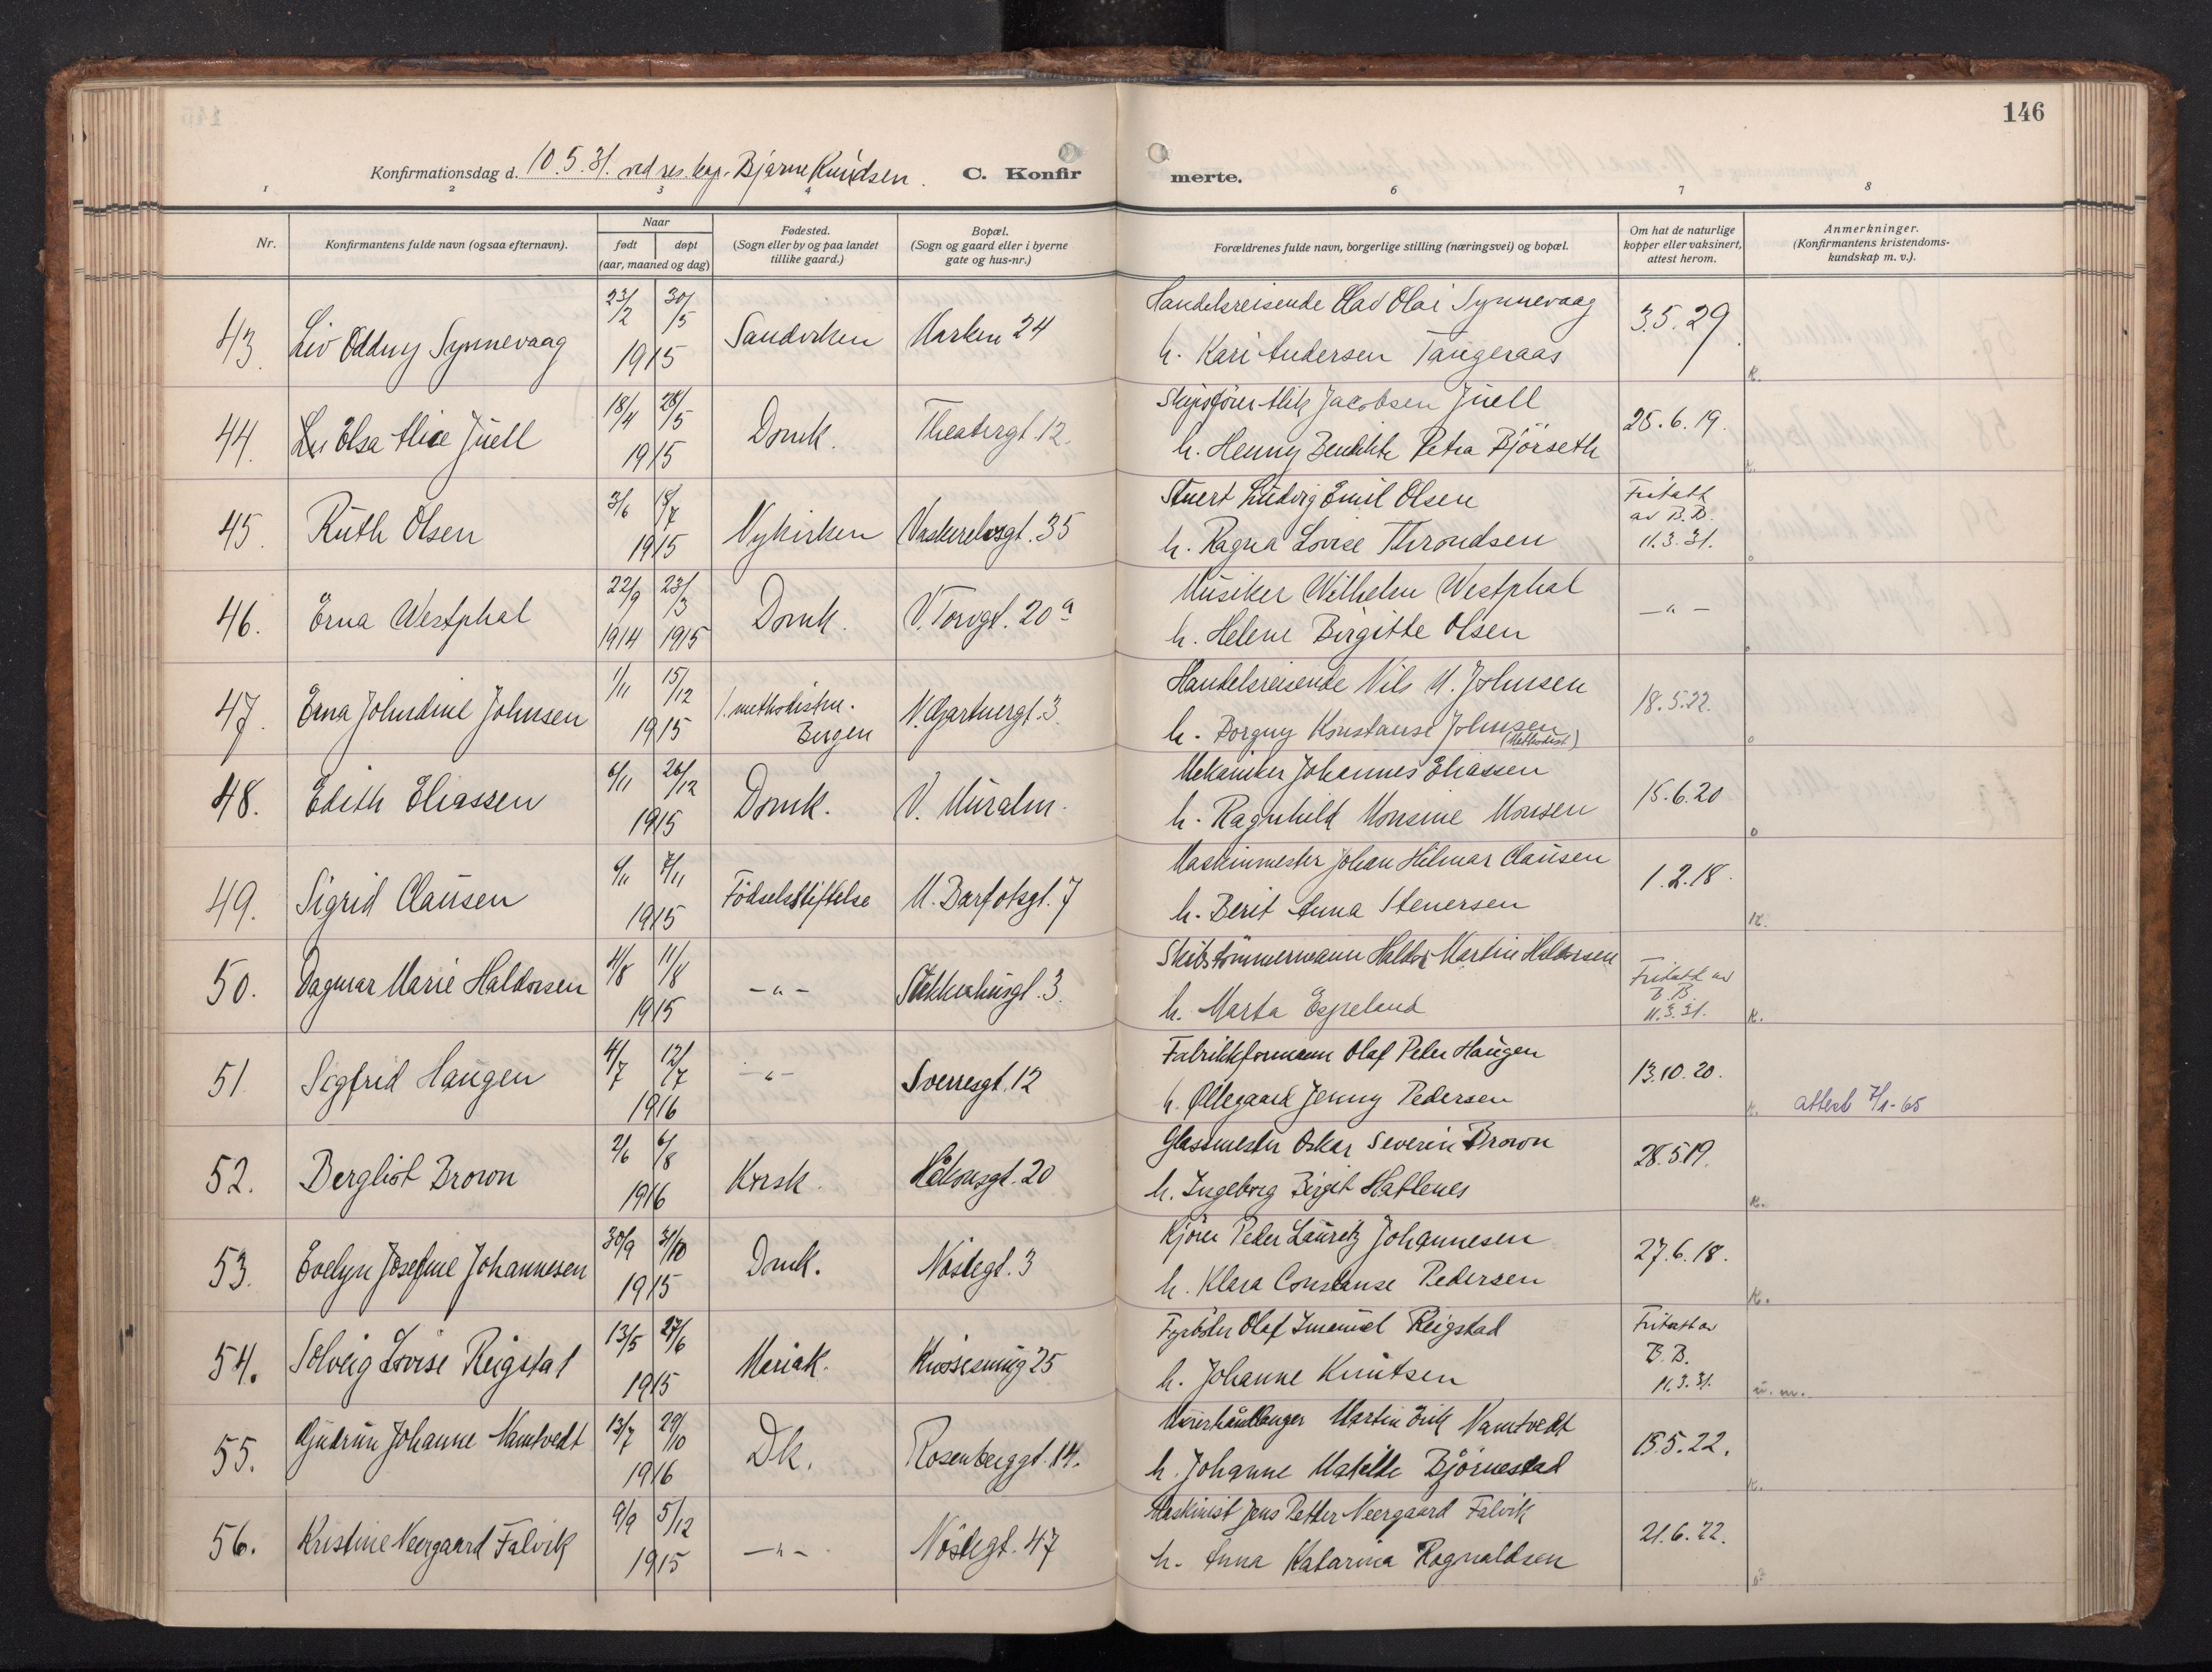 146
Konfirmationsdag d. 10.5.31. ved res. kap. Bjarne Knudsen. C. Konfirmerte.
1 2 3 4 6 7 8
Nr.
Konfirmantens fulde navn (ogsaa efternavn).
Naar
født døpt
(aar, maaned og dag)
Fødested.
(Sogn eller by og paa landet
tillike gaard.)
Bopæl.
(Sogn og gaard eller i byerne
gate og hus-nr.)
Forældrenes fulde navn, borgerlige stilling (næringsvei) og bopæl.
Om hat de naturlige
kopper eller vaksinert,
attest herom.
Anmerkninger.
(Konfirmantens kristendoms-
kundskap m. v.).
43. Liv Oddny Synnevaag 23/2 30/5 1915 Sandviken Marken 24
Handelsreisende Olav Olai Synnevaag
h. Kari Andersen Tangeraas
3.5.29. K.
44. Elsa Alice Juell 18/4 28/5 1915 Domk. Theatergt. 12.
Skipsfører Jacobsen Juell
h. Henny Petra Bjørseth
25.6.19. K.
45. Ruth Olsen 3/6 18/7 1915 Nykirken Vaskerelvsgt. 35
Stuert Ludvig Emil Olsen
h. Ragna Lovise Throndsen
Fritatt
av B.B.
11.3.31. o
46. Erna Westphal 22/9 1914 23/3 1915 Domk. V. Torvgt. 20a
Musiker Wilhelm Westphal
h. Helene Birgitte Olsen
-"- o
47. Erna Johndine Johnsen 1/11 15/12 1915 1. methodistm. Bergen N. Gartnergt. 3.
Handelsreisende Nils M. Johnsen
h. Borgny Konstanse Johnsen
(Methodist)
18.5.22. o
48. Edith Eliassen 6/11 26/12 1915 Domk. V. Muralm.
Mekaniker Johannes Eliassen
h. Ragnhild Monsine Monsen
15.6.20 o
49. Sigrid Clausen 6/11 7/11 1915 Fødselsstiftelse M. Barfotsgt. 7
Maskinmester Johan Hilmar Clausen
h. Berit Anna Stenersen
1.2.18. K.
50. Dagmar Marie Haldorsen 4/8 11/8 1915 -"- Støkkehusgt. 3.
Skibstømmermann Haldor Martin Haldorsen
h. Marta Espeland
Fritatt av
B.B.
11.3.31. K.
51. Sigfrid Haugen 4/7 12/7 1916 -"- Sverresgt. 12
Fabrikkformann Olaf Peter Haugen
h. Ollegaard Jenny Pedersen
13.10.20. K. attest 7/1-65
52. Bergliot Brown 2/6 6/8 1916 Korsk. Håkonsgt. 20
Glassmester Oskar Severin Brown
h. Ingeborg Birgit Hatlenes
28.5.19. K.
53. Evelyn Josefine Johannesen 30/9 31/10 1915 Domk. Nøstegt. 3
Kjører Peder Lauretz Johannesen
h. Klara Constanse Pedersen
27.6.18. K.
54. Solveig Lovise Reigstad 13/5 27/6 1915 Mariak. Knøsesmug 25
Fyrbøter Olaf Imanuel Reigstad
h. Johanne Knutsen
Fritatt av
B.B.
11.3.31. u.m.
55. Gudrun Johanne Namtvedt 13/7 29/10 1916 Dk. Rosenberggt. 14.
Murerhåndlanger Martin Erik Namtvedt
h. Johanne Matilde Bjørnestad
15.5.22. K.
56. Kristine Neergaard Falvik 9/9 5/12 1915 -"- Nøstegt. 47
Maskinist Jens Petter Neergaard Falvik
h. Anna Katarina Ragnaldsen
21.6.22.